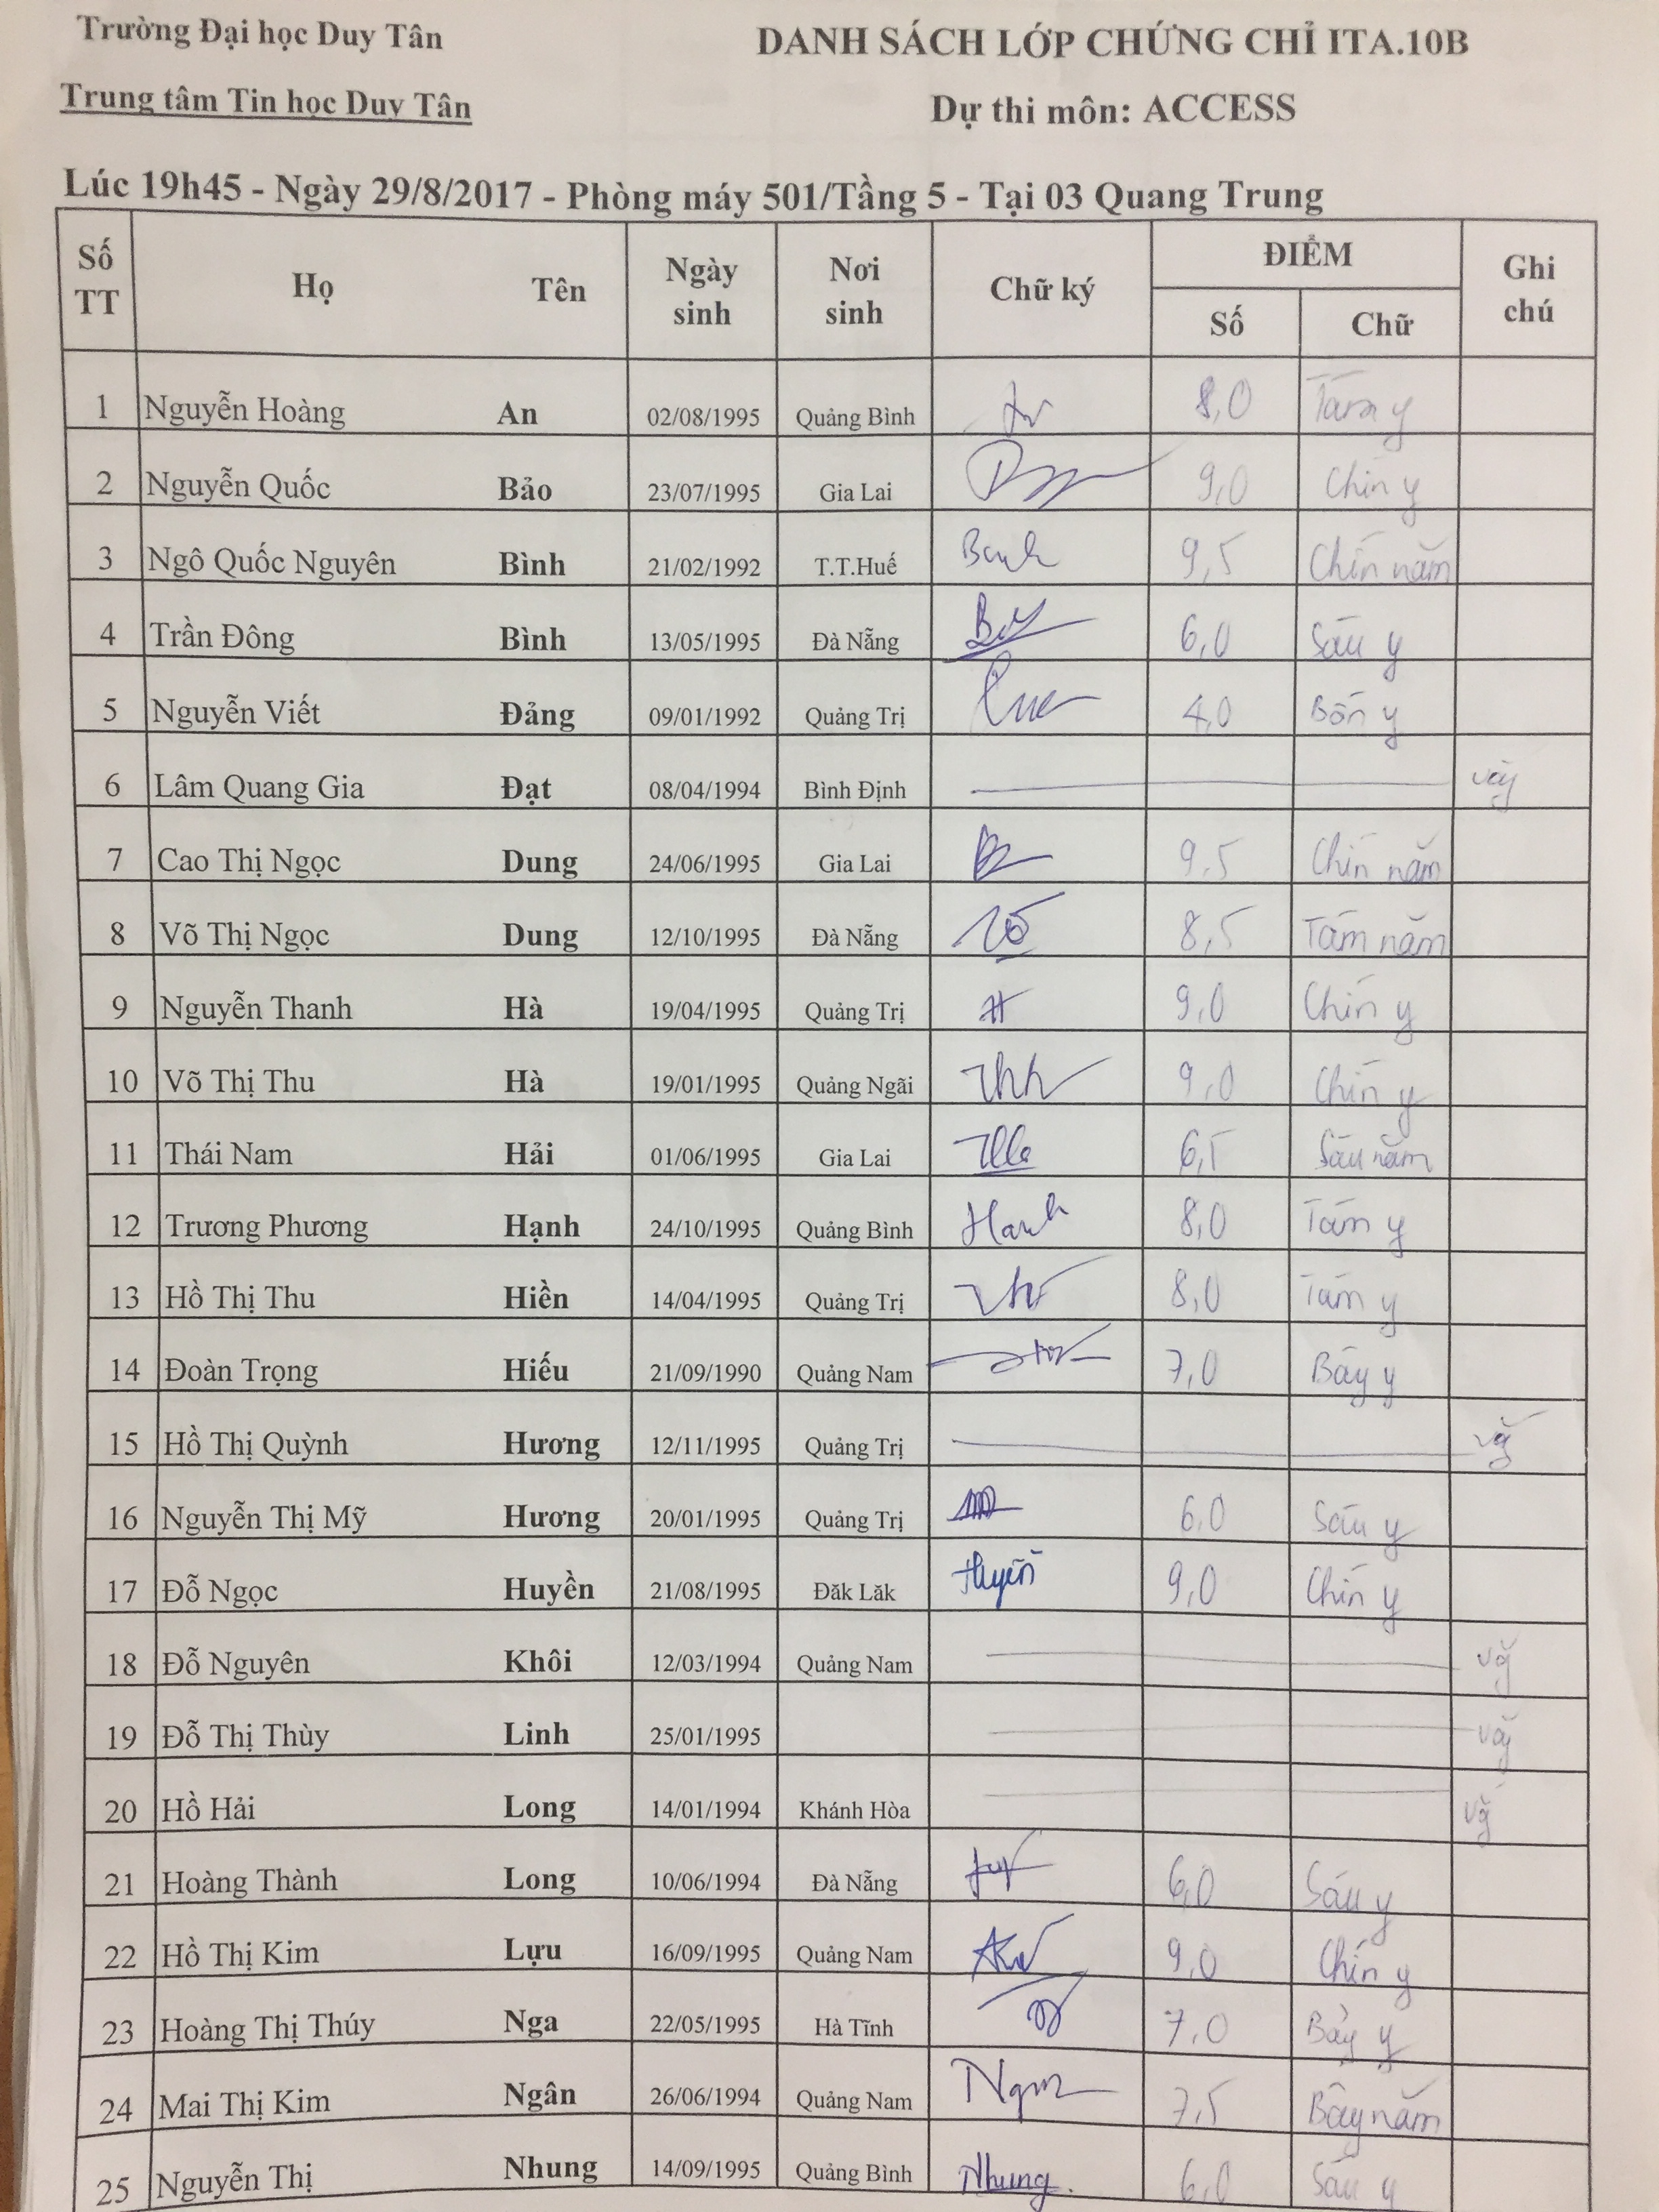 Trường Đại học Duy Tân
DANH SÁCH LỚP CHỨNG CHỈ ITA.10B
Trung tâm Tin học Duy Tân
Dự thi môn: ACCESS
Lúc 19h45 - Ngày 29/8/2017 - Phòng máy 501/Tầng 5 - Tại 03 Quang Trung
Số TT Họ Tên Ngày sinh Nơi sinh Chữ ký ĐIỂM Số Chữ Ghi chú
1 Nguyễn Hoàng An 02/08/1995 Quảng Bình 8,0 Tám y
2 Nguyễn Quốc Bảo 23/07/1995 Gia Lai 9,0 Chín y
3 Ngô Quốc Nguyên Bình 21/02/1992 T.T.Huế 9,5 Chín năm
4 Trần Đông Bình 13/05/1995 Đà Nẵng 6,0 Sáu y
5 Nguyễn Viết Đảng 09/01/1992 Quảng Trị 4,0 Bốn y
6 Lâm Quang Gia Đạt 08/04/1994 Bình Định
7 Cao Thị Ngọc Dung 24/06/1995 Gia Lai 9,5 Chín năm
8 Võ Thị Ngọc Dung 12/10/1995 Đà Nẵng Võ 8,5 Tám năm
9 Nguyễn Thanh Hà 19/04/1995 Quảng Trị 9,0 Chín y
10 Võ Thị Thu Hà 19/01/1995 Quảng Ngãi 9,0 Chín y
11 Thái Nam Hải 01/06/1995 Gia Lai 6,5 Sáu năm
12 Trương Phương Hạnh 24/10/1995 Quảng Bình Hanh 8,0 Tám y
13 Hồ Thị Thu Hiền 14/04/1995 Quảng Trị 8,0 Tám y
14 Đoàn Trọng Hiếu 21/09/1990 Quảng Nam 7,0 Bảy y
15 Hồ Thị Quỳnh Hương 12/11/1995 Quảng Trị
16 Nguyễn Thị Mỹ Hương 20/01/1995 Quảng Trị 6,0 Sáu y
17 Đỗ Ngọc Huyền 21/08/1995 Đăk Lăk Huyền 9,0 Chín y
18 Đỗ Nguyên Khôi 12/03/1994 Quảng Nam
19 Đỗ Thị Thùy Linh 25/01/1995
20 Hồ Hải Long 14/01/1994 Khánh Hòa
21 Hoàng Thành Long 10/06/1994 Đà Nẵng 6,0 Sáu y
22 Hồ Thị Kim Lựu 16/09/1995 Quảng Nam 9,0 Chín y
23 Hoàng Thị Thúy Nga 22/05/1995 Hà Tĩnh 7,0 Bảy y
24 Mai Thị Kim Ngân 26/06/1994 Quảng Nam 7,5 Bảy năm
25 Nguyễn Thị Nhung 14/09/1995 Quảng Bình Nhung 6,0 Sáu y